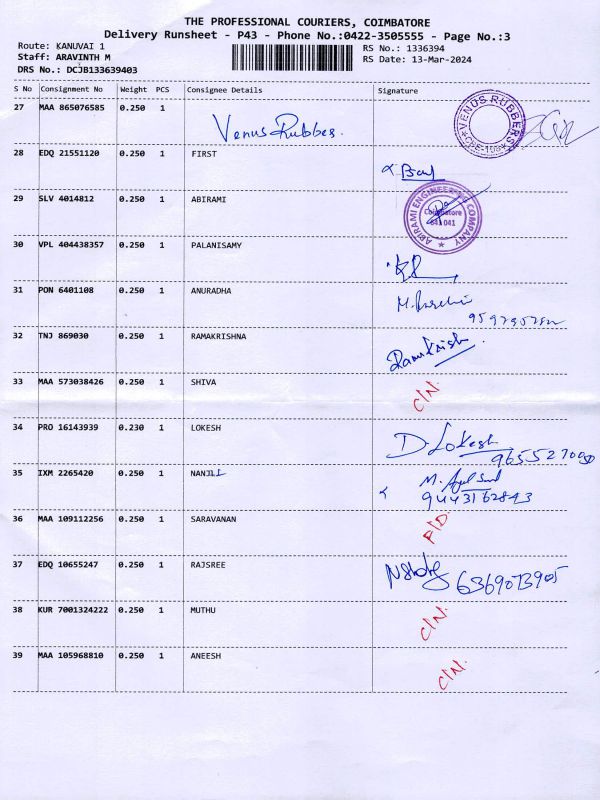 THE PROFESSIONAL COURIERS, COIMBATORE
Delivery Runsheet - P43 - Phone No.:0422-3505555 - Page No.:3
Route: KANUVAI 1 RS No.: 1336394
Staff: ARAVINTH M RS Date: 13-Mar-2024
DRS No.: DCJB133639403
S No Consignment No Weight PCS Consignee Details Signature
27 MAA 865076585 0.250 1 Venus Rubbes. VENUS RUBBERS
28 EDQ 21551120 0.250 1 FIRST
29 SLV 4014812 0.250 1 ABIRAMI ABIRAMI ENGINEERING COMPANY Coimbatore 641 041
30 VPL 404438357 0.250 1 PALANISAMY
31 PON 6401108 0.250 1 ANURADHA
32 TNJ 869030 0.250 1 RAMAKRISHNA RamaKrish
33 MAA 573038426 0.250 1 SHIVA C/N.
34 PRO 16143939 0.230 1 LOKESH D. Lokesh
35 IXM 2265420 0.250 1 9443162843
36 MAA 109112256 0.250 1 SARAVANAN P/D.
37 EDQ 10655247 0.250 1 RAJSREE 6369073905
38 KUR 7001324222 0.250 1 MUTHU C/N.
39 MAA 105968810 0.250 1 ANEESH C/N.